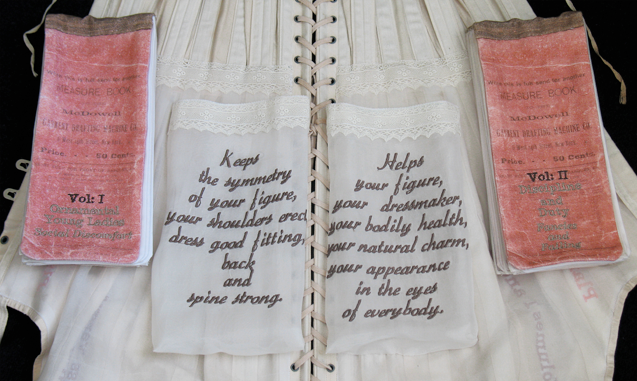 MEASURE BOOK
McDowell
GARMENT DRAFTING MACHINE CO.
Price . . . 50 Cents.
Vol: I
Keeps
the symmetry
of your figure,
your shoulders erect,
dress good fitting,
back
and
spine strong.
Helps
your figure,
your dressmaker,
your bodily health,
your natural charm,
your appearance
in the eyes
of everybody.
MEASURE BOOK
McDowell
GARMENT DRAFTING MACHINE CO.
Price . . . 50 Cents.
Vol: II